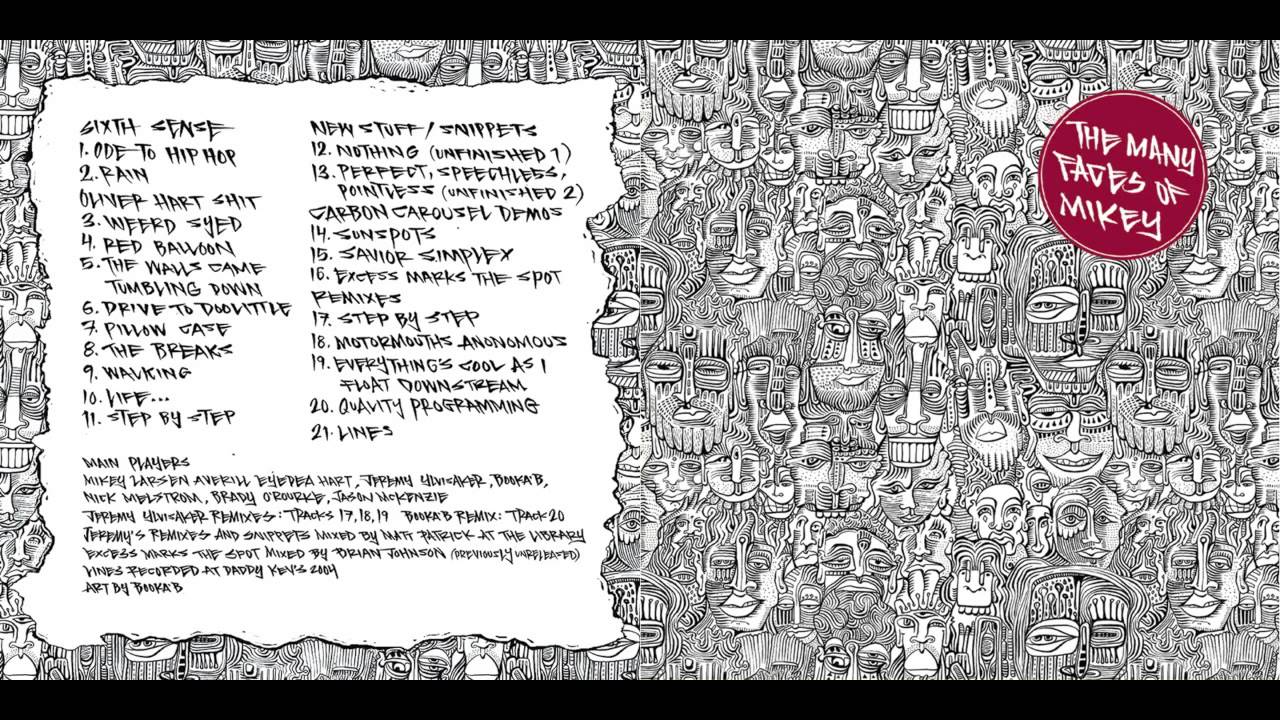 SIXTH SENSE
1. ODE TO HIP HOP
2. RAIN
OLIVER HART SHIT
3. WEERD SYED
4. RED BALLOON
5. THE WALLS CAME
TUMBLING DOWN
6. DRIVE TO DOOLITTLE
7. PILLOW CASE
8. THE BREAKS
9. WALKING
10. LIFE...
11. STEP BY STEP
NEW STUFF / SNIPPETS
12. NOTHING (UNFINISHED 1)
13. PERFECT, SPEECHLESS,
POINTLESS (UNFINISHED 2)
CARBON CAROUSEL DEMOS
14. SUNSPOTS
15. SAVIOR SIMPLEX
16. EXCESS MARKS THE SPOT
REMIXES
17. STEP BY STEP
18. MOTORMOUTHS ANONOMOUS
19. EVERYTHING'S COOL AS I
FLOAT DOWNSTREAM
20. QUALITY PROGRAMMING
21. LINES
MAIN PLAYERS
MIKEY LARSEN AVERILL EYEDEA HART, JEREMY YLVISAKER, BOOKA'B,
NICK MELSTROM, BRADY O'ROURKE, JASON MCKENZIE
JEREMY YLVISAKER REMIXES: TRACKS 17,18,19 BOOKA'B REMIX: TRACK 20
JEREMY'S REMIXES AND SNIPPETS MIXED BY MATT PATRICK AT THE LIBRARY
EXCESS MARKS THE SPOT MIXED BY BRIAN JOHNSON (PREVIOUSLY UNRELEASED)
LINES RECORDED AT DADDY KEV'S 2004
ART BY BOOKA'B
THE MANY
FACES OF
MIKEY